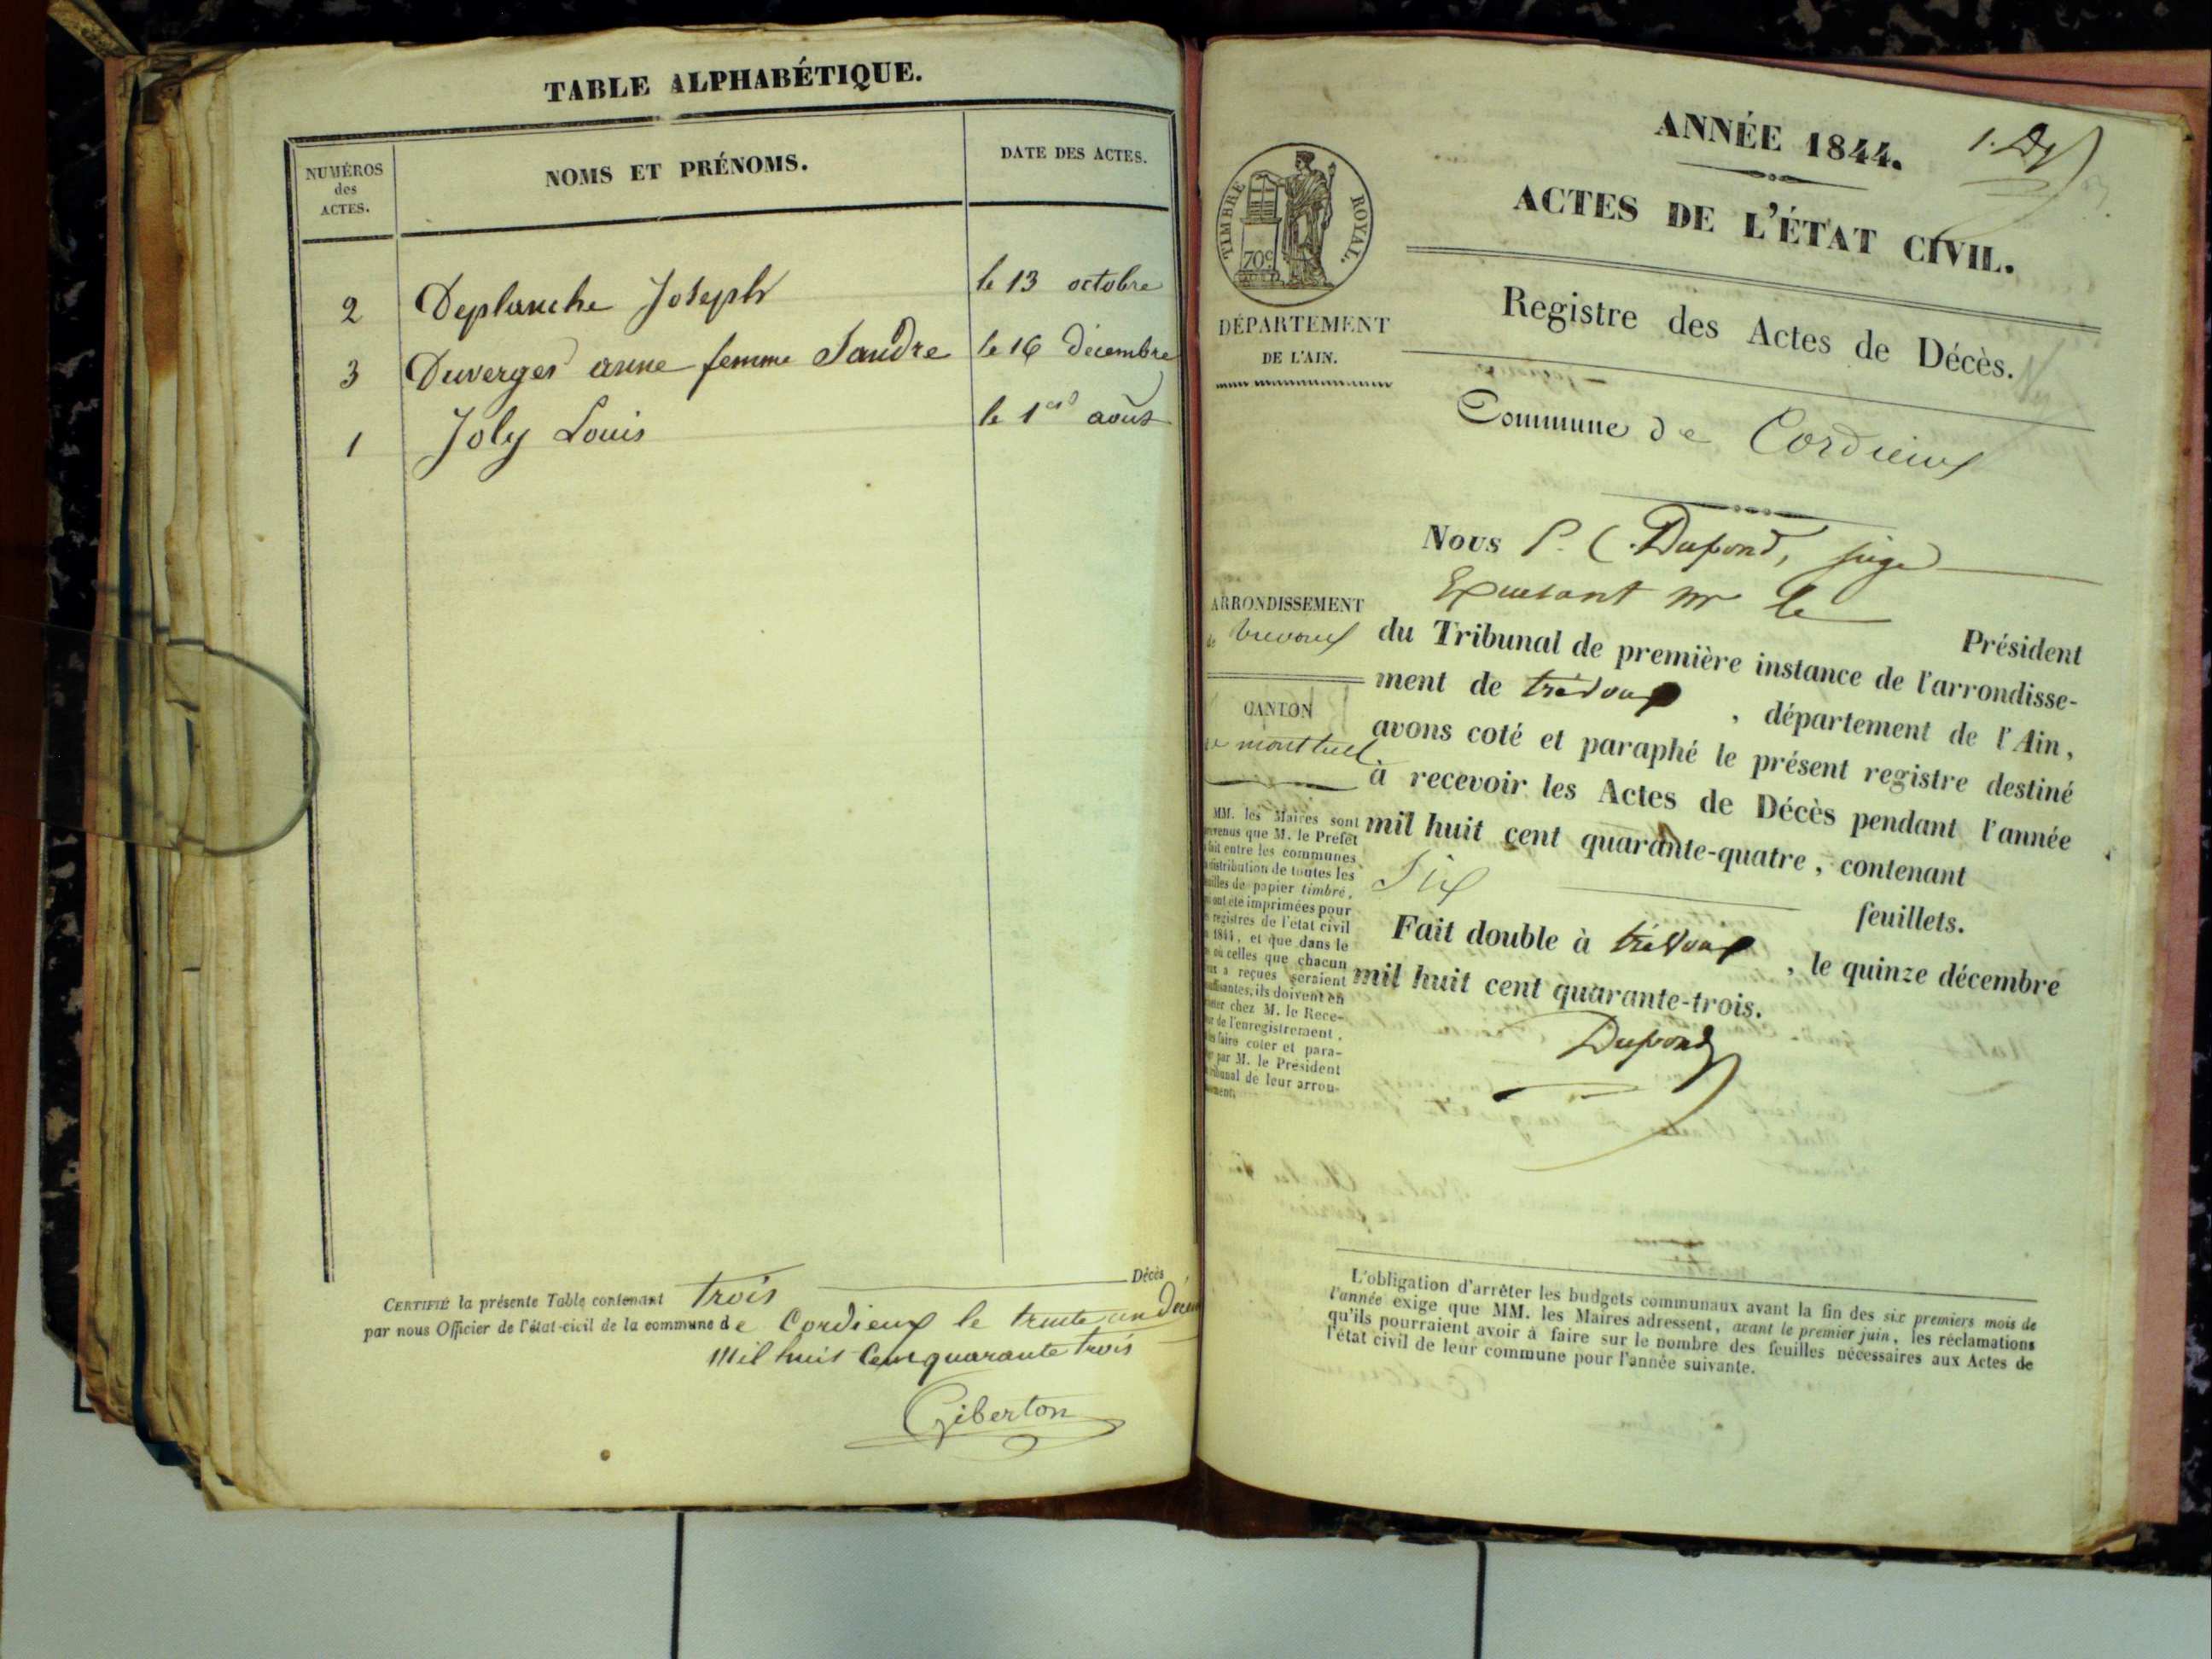 TABLE ALPHABÉTIQUE.
NUMÉROS
des
ACTES.
NOMS ET PRÉNOMS.
DATE DES ACTES.
2 Deplanche Joseph le 13 octobre
3 Duverger anne femme Jandre le 16 décembre
1 Joly Louis le 1er août
CERTIFIÉ la présente Table contenant trois Décès
par nous Officier de l'état-civil de la commune de Cordieux le trente un
Mil huit Cent quarante trois
Giberton
ANNÉE 1844.
ACTES DE L'ÉTAT CIVIL.
TIMBRE ROYAL.
70c
DÉPARTEMENT
DE L'AIN.
Registre des Actes de Décès.
Commune de Cordieux
Nous P. C. Dupond, juge
Excusant mr le Président
ARRONDISSEMENT
de trevoux
CANTON
montluel
du Tribunal de première instance de l'arrondisse-
ment de trévoux, département de l'Ain,
avons coté et paraphé le présent registre destiné
à recevoir les Actes de Décès pendant l'année
mil huit cent quarante-quatre, contenant
Six feuillets.
Fait double à trévoux, le quinze décembre
mil huit cent quarante-trois.
Dupond
MM. les Maires sont
que M. le Préfet
fait entre les communes
distribution de toutes les
de papier timbré,
ont été imprimées pour
registres de l'état civil
1844, et que dans le
où celles que chacun
a reçues seraient
ils doivent en
chez M. le Rece-
de l'enregistrement,
faire coter et para-
par M. le Président
de leur arron-
L'obligation d'arrêter les budgets communaux avant la fin des six premiers mois de
l'année exige que MM. les Maires adressent, avant le premier juin, les réclamations
qu'ils pourraient avoir à faire sur le nombre des feuilles nécessaires aux Actes de
l'état civil de leur commune pour l'année suivante.